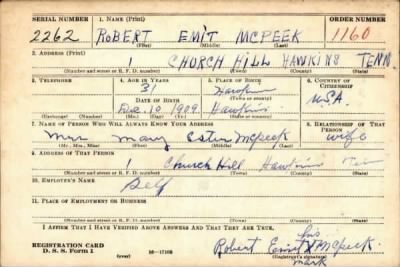 SERIAL NUMBER 1. NAME (Print) ORDER NUMBER
2262 ROBERT EMIT MCPEEK 1160
(First) (Middle) (Last)
2. ADDRESS (Print)
1 CHURCH HILL HAWKINS TENN
(Number and street or R. F. D. number) (Town) (County) (State)
3. TELEPHONE 4. AGE IN YEARS 5. PLACE OF BIRTH 6. COUNTRY OF CITIZENSHIP
31 Hawkins
DATE OF BIRTH (Town or county) USA
Dec 10 1909 Hawkins
(Exchange) (Number) (Mo.) (Day) (Yr.) (State or country)
7. NAME OF PERSON WHO WILL ALWAYS KNOW YOUR ADDRESS 8. RELATIONSHIP OF THAT PERSON
Mrs Mary Ester McPeek wife
(Mr., Mrs., Miss) (First) (Middle) (Last)
9. ADDRESS OF THAT PERSON
1 Church Hill Hawkins
(Number and street or R. F. D. number) (Town) (County) (State)
10. EMPLOYER'S NAME
Self
11. PLACE OF EMPLOYMENT OR BUSINESS
(Number and street or R. F. D. number) (Town) (County) (State)
I AFFIRM THAT I HAVE VERIFIED ABOVE ANSWERS AND THAT THEY ARE TRUE.
his
REGISTRATION CARD Robert Emit X McPeek
D. S. S. Form 1 (Registrant's signature)
mark